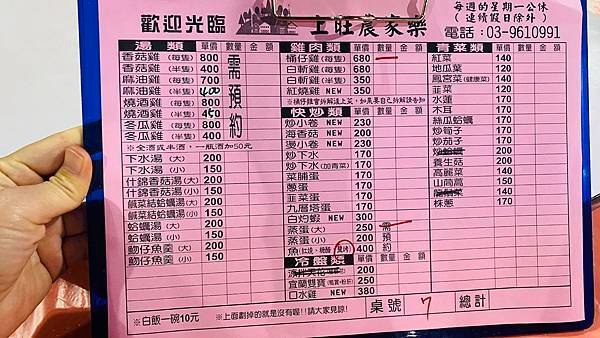 歡迎光臨 上旺農家樂
每週的星期一公休
（連續假日除外）
電話：03-9610991
湯類 單價 數量 金額
香菇雞（每隻） 800
香菇雞（半隻） 400
麻油雞（每隻） 700
麻油雞（半隻） 400
燒酒雞（每隻） 800
燒酒雞（半隻） 450
冬瓜雞（每隻） 800
冬瓜雞（半隻） 400
需預約
※全酒或半酒，一瓶酒加50元
下水湯（大） 200
下水湯（小） 150
什錦香菇湯（大） 200
什錦香菇湯（小） 150
鹹菜結蛤蠣湯（大） 200
鹹菜結蛤蠣湯（小） 150
蛤蠣湯（大） 200
蛤蠣湯（小） 150
魩仔魚羹（大） 200
魩仔魚羹（小） 150
雞肉類 單價 數量 金額
桶仔雞（每隻） 680
白斬雞（每隻） 680
白斬雞（半隻） 350
紅燒雞 NEW 350
快炒類 單價 數量 金額
炒小卷 NEW 230
海香菇 NEW 200
燙小卷 NEW 200
炒下水 170
炒下水（加青菜） 170
菜脯蛋 170
蔥蛋 170
韭菜蛋 170
九層塔蛋 170
白灼蝦 NEW 300
蒸蛋（大） 250 需
蒸蛋（小） 200 預
魚（紅燒、糖醋、鹽烤） 400 約
冷盤類 單價 數量 金額
200
宜蘭雙寶（鴨賞·粉肝） 250
口水雞 NEW 380
青菜類 單價 數量 金額
紅菜 140
地瓜葉 120
鳳宮菜（健康菜） 140
韭菜 120
水蓮 170
木耳 170
絲瓜蛤蠣 170
炒筍子 170
炒茄子 170
炒蛤蠣 200
養生菇 200
高麗菜 140
山茼蒿 150
龍鬚菜 140
株蔥 170
桌號 7 總計
※白飯一碗10元 ※上面劃掉的就是沒有喔!!請大家見諒!